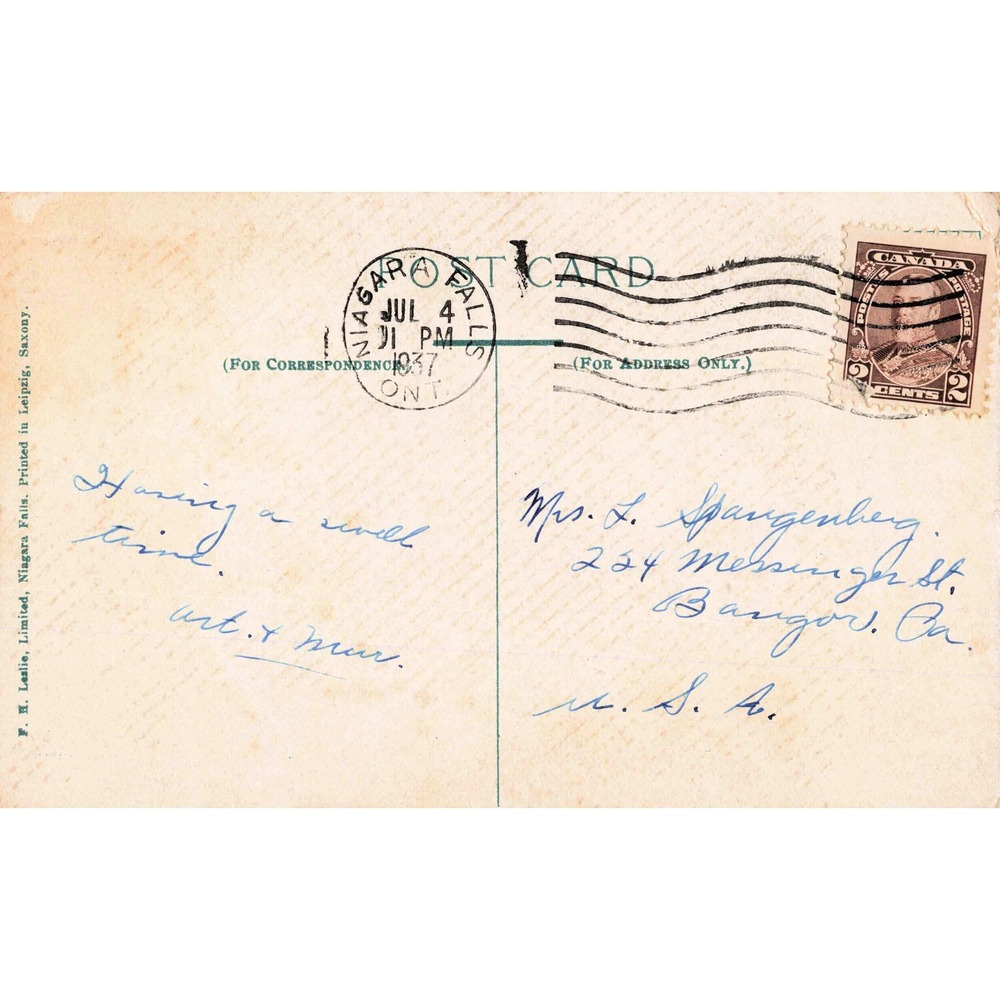 POST CARD
NIAGARA FALLS
JUL 4
11 PM
1937
ONT.
CANADA
POSTES POSTAGE
2 CENTS 2
(FOR CORRESPONDENCE
(FOR ADDRESS ONLY.)
F. H. Leslie, Limited, Niagara Falls. Printed in Leipzig, Saxony.
Having a swell
time.
Art. & Mur.
Mrs. L. Spangenberg.
224 Messinger St.
Bangor. Pa.
U. S. A.